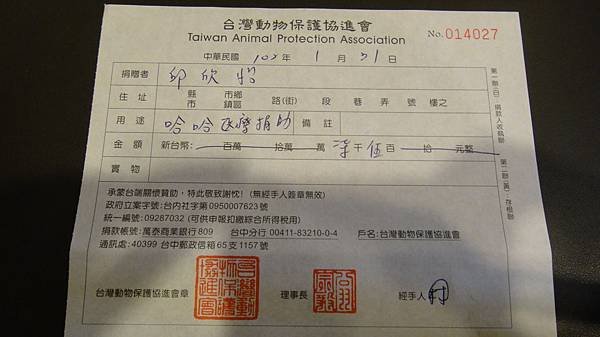 台灣動物保護協進會
Taiwan Animal Protection Association
No. 014027
中華民國 年 1 月 31 日
捐贈者 邱欣怡
住址 縣市 市鄉鎮區 路(街) 段 巷 弄 號 樓之
用途 哈哈医療捐助 備註
金額 新台幣: 百萬 拾萬 萬 千伍百 拾 元整
實物
承蒙台端關懷贊助,特此敬致謝忱!(無經手人簽章無效)
政府立案字號:台内社字第0950007623號
統一編號:09287032 (可供申報扣繳綜合所得稅用)
捐款帳號:萬泰商業銀行809 台中分行 00411-83210-0-4 戶名:台灣動物保護協進會
通訊處:40399 台中郵政信箱65支1157號
台灣動物保護協進會章 理事長 經手人
第一聯(白):捐款人收執聯
第二聯(黃):存根聯